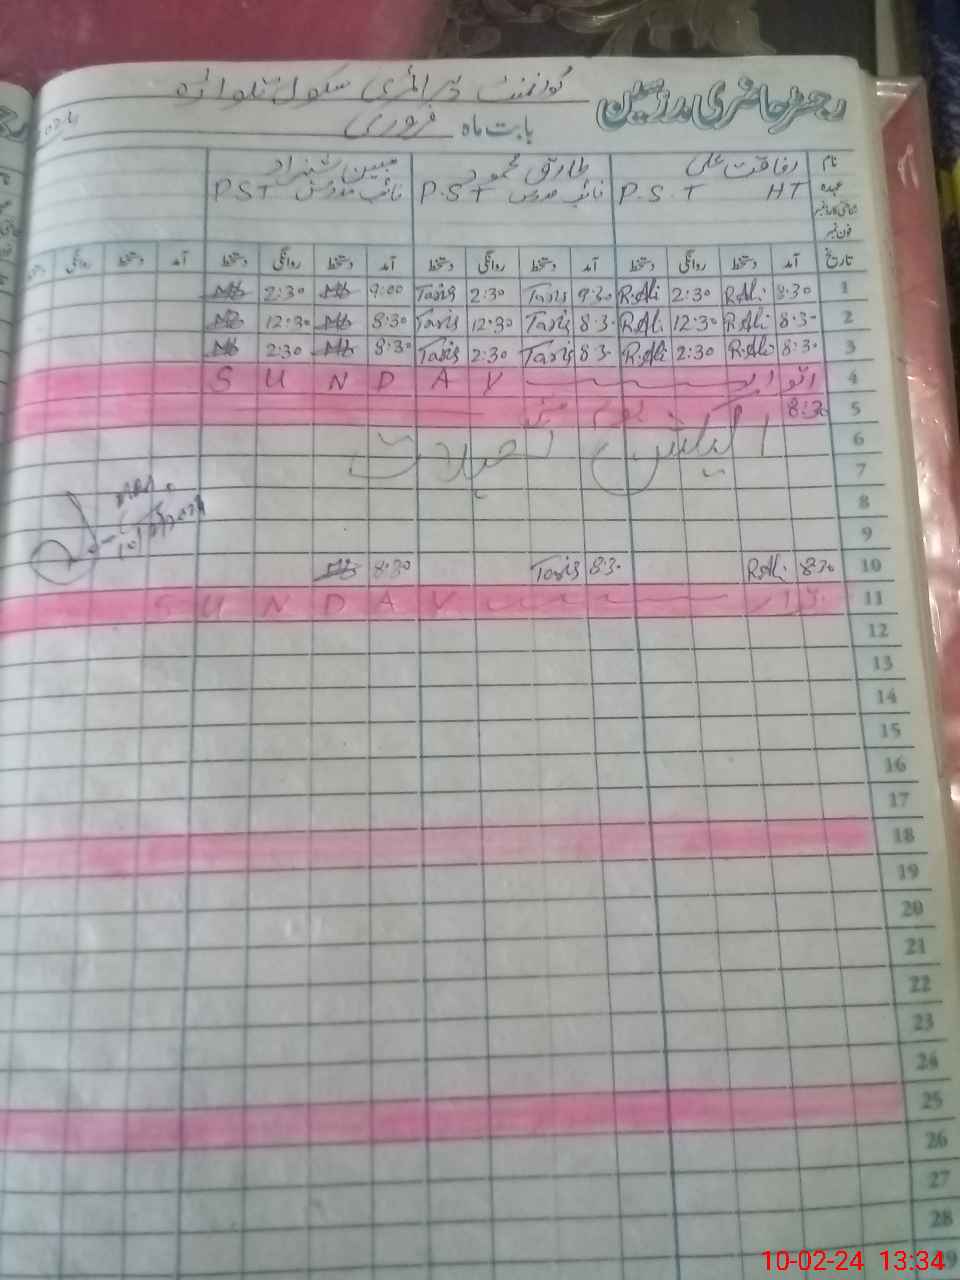 رجسٹر حاضری مدرسین گورنمنٹ پرائمری سکول تلواڑہ
بابت ماہ فروری
نام رفاقت علی طارق محمود مبین شہزاد
عہدہ HT P.S.T نائب مدرس P.S.T نائب مدرس PST
شناختی کارڈ نمبر
فون نمبر
تاریخ آمد دستخط روانگی دستخط آمد دستخط روانگی دستخط آمد دستخط روانگی دستخط آمد دستخط روانگی
1 8:30 R.Ali 2:30 R.Ali 9:30 Taris 2:30 Taris 9:00 2:30
2 8:30 R.Ali 12:30 R.Ali 8:30 Taris 12:30 Taris 8:30 12:30
3 8:30 R.Ali 2:30 R.Ali 8:30 Taris 2:30 Taris 8:30 2:30
4 اتوار SUNDAY
5 8:30
6 الیکشن تعطیلات
7
8
9
10 8:30 R.Ali 8:30 Taris 8:30
11 اتوار SUNDAY
12
13
14
15
16
17
18
19
20
21
22
23
24
25
26
27
28
29
10-02-24 13:34